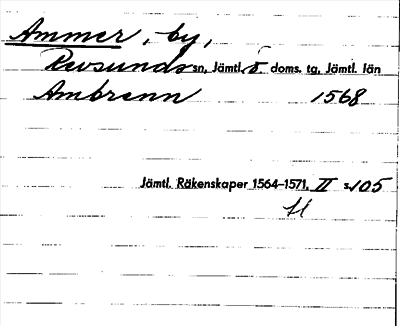 Ammer, by,
Revsunds sn, Jämtl. ö doms. tg, Jämtl. län
Ambrenn 1568
Jämtl. Räkenskaper 1564–1571, II s. 105